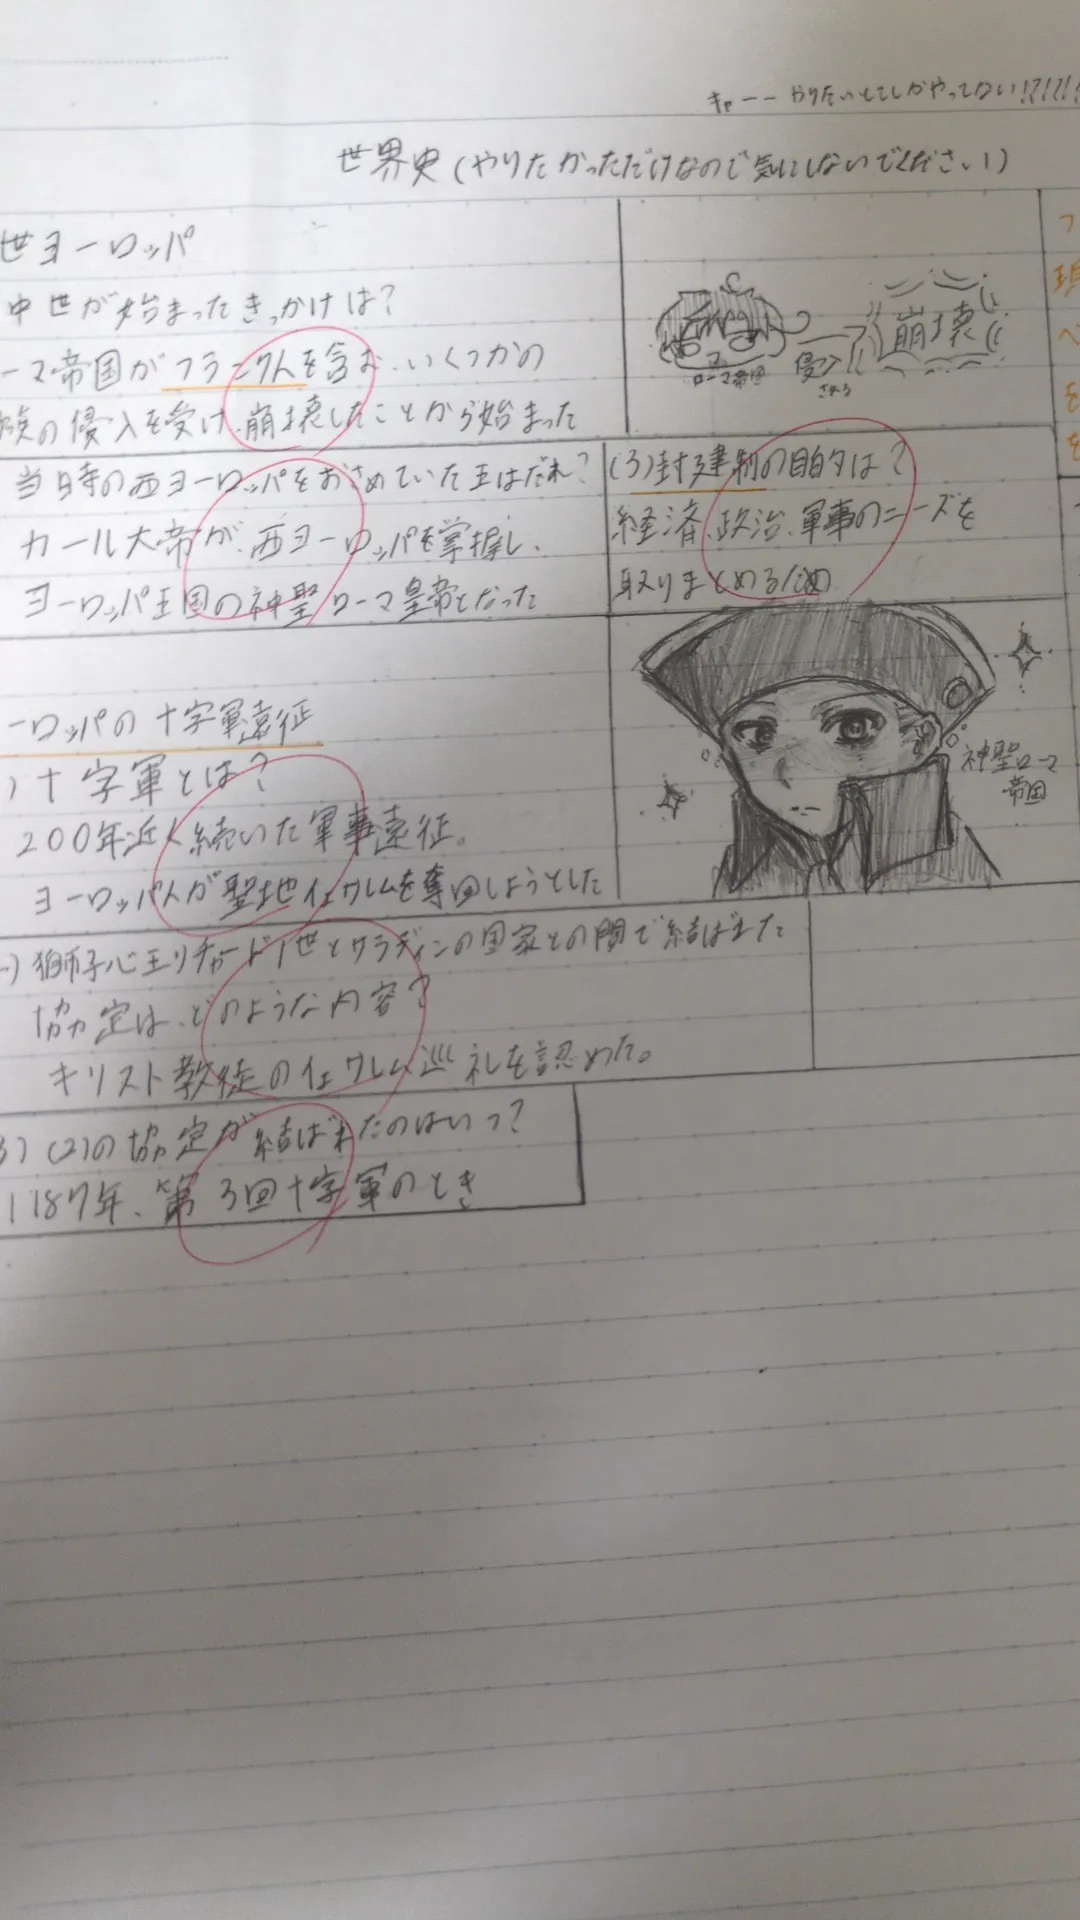 キャーー やりたいとこしかやってない!?!?!?
世界史(やりたかっただけなので気にしないでください)
世ヨーロッパ
中世が始まったきっかけは?
ーマ帝国がフランク人を含む、いくつかの
族の侵入を受け、崩壊したことから始まった
ローマ帝国
侵入
される
崩壊
当時の西ヨーロッパをおさめていた王はだれ?
カール大帝が、西ヨーロッパを掌握し、
ヨーロッパ王国の神聖ローマ皇帝となった
(3)封建制の目的は?
経済、政治、軍事のニーズを
取りまとめるため
ーロッパの十字軍遠征
)十字軍とは?
200年近く続いた軍事遠征。
ヨーロッパ人が聖地イェルサレムを奪回しようとした
神聖ローマ
帝国
)獅子心王リチャード1世とサラディンの国家との間で結ばれた
協定は、どのような内容?
キリスト教徒のイェルサレム巡礼を認めた。
3)(2)の協定が結ばれたのはいつ?
1187年、第3回十字軍のとき
フ